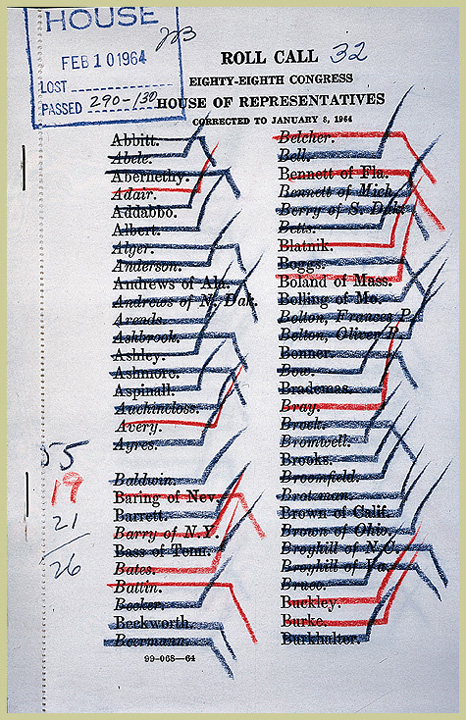 HOUSE
FEB 10 1964
LOST
PASSED 290-130
223
ROLL CALL 32
EIGHTY-EIGHTH CONGRESS
HOUSE OF REPRESENTATIVES
CORRECTED TO JANUARY 8, 1964
Abbitt.
Abele.
Abernethy.
Adair.
Addabbo.
Albert.
Alger.
Anderson.
Andrews of Ala.
Andrews of N. Dak.
Arends.
Ashbrook.
Ashley.
Ashmore.
Aspinall.
Auchincloss.
Avery.
Ayres.
Baldwin.
Baring of Nev.
Barrett.
Barry of N.Y.
Bass of Tenn.
Bates.
Battin.
Becker.
Beckworth.
Beermann.
99-068—64
Belcher.
Bell.
Bennett of Fla.
Bennett of Mich.
Berry of S. Dak.
Betts.
Blatnik.
Boggs.
Boland of Mass.
Bolling of Mo.
Bolton, Frances P.
Bolton, Oliver P.
Bonner.
Bow.
Brademas.
Bray.
Brock.
Bromwell.
Brooks.
Broomfield.
Brotzman.
Brown of Calif.
Brown of Ohio.
Broyhill of N.C.
Broyhill of Va.
Bruce.
Buckley.
Burke.
Burkhalter.
55
19
21
26